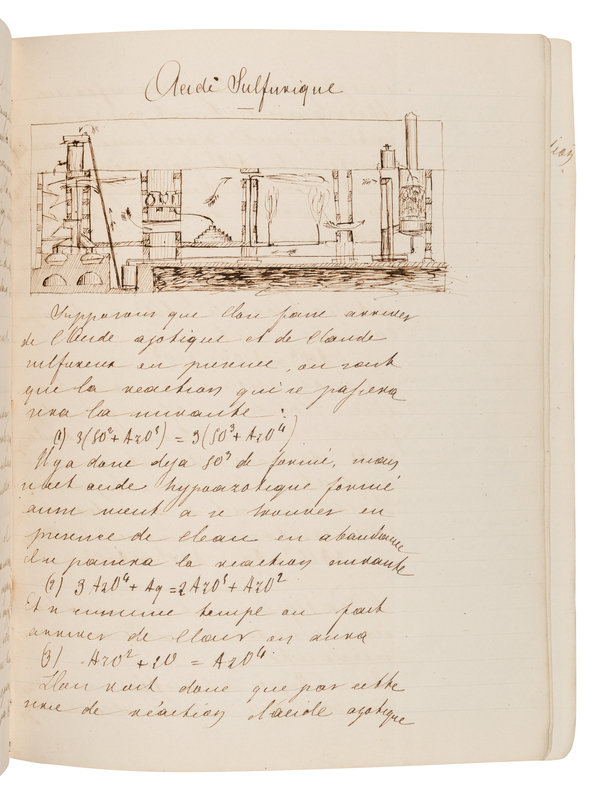 Acide Sulfurique
Supposons que l'on fasse arriver
de l'Acide azotique et de l'acide
sulfureux en presence, on sait
que la reaction qui se passera
sera la suivante :
(1) 3(SO² + AzO⁵) = 3(SO³ + AzO⁴)
Il y a donc deja SO³ de formé, mais
acide hypoazotique formé
aussi vient a se trouver en
presence de l'eau en abondance
la reaction suivante
(2) 3 AzO⁴ + Aq = 2 AzO⁵ + AzO²
Et si en même temps on fait
arriver de l'air on aura
(3) AzO² + 2O = AzO⁴
L'on voit donc que par cette
serie de réaction l'acide azotique